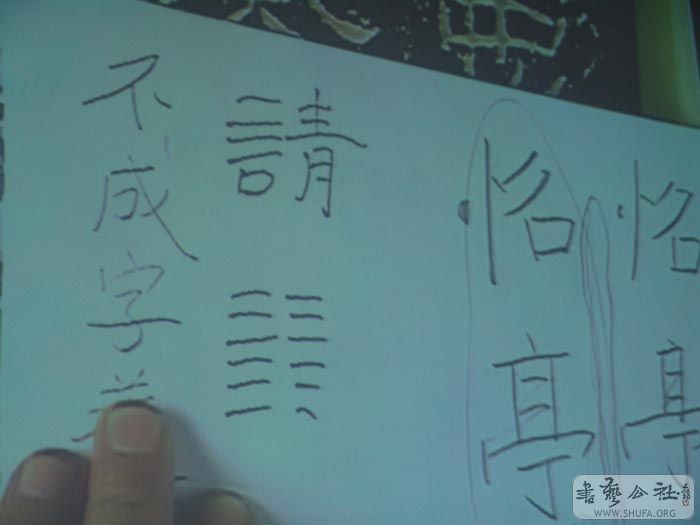 不成字
請
怡亭
怡亭
書藝公社
WWW.SHUFA.ORG